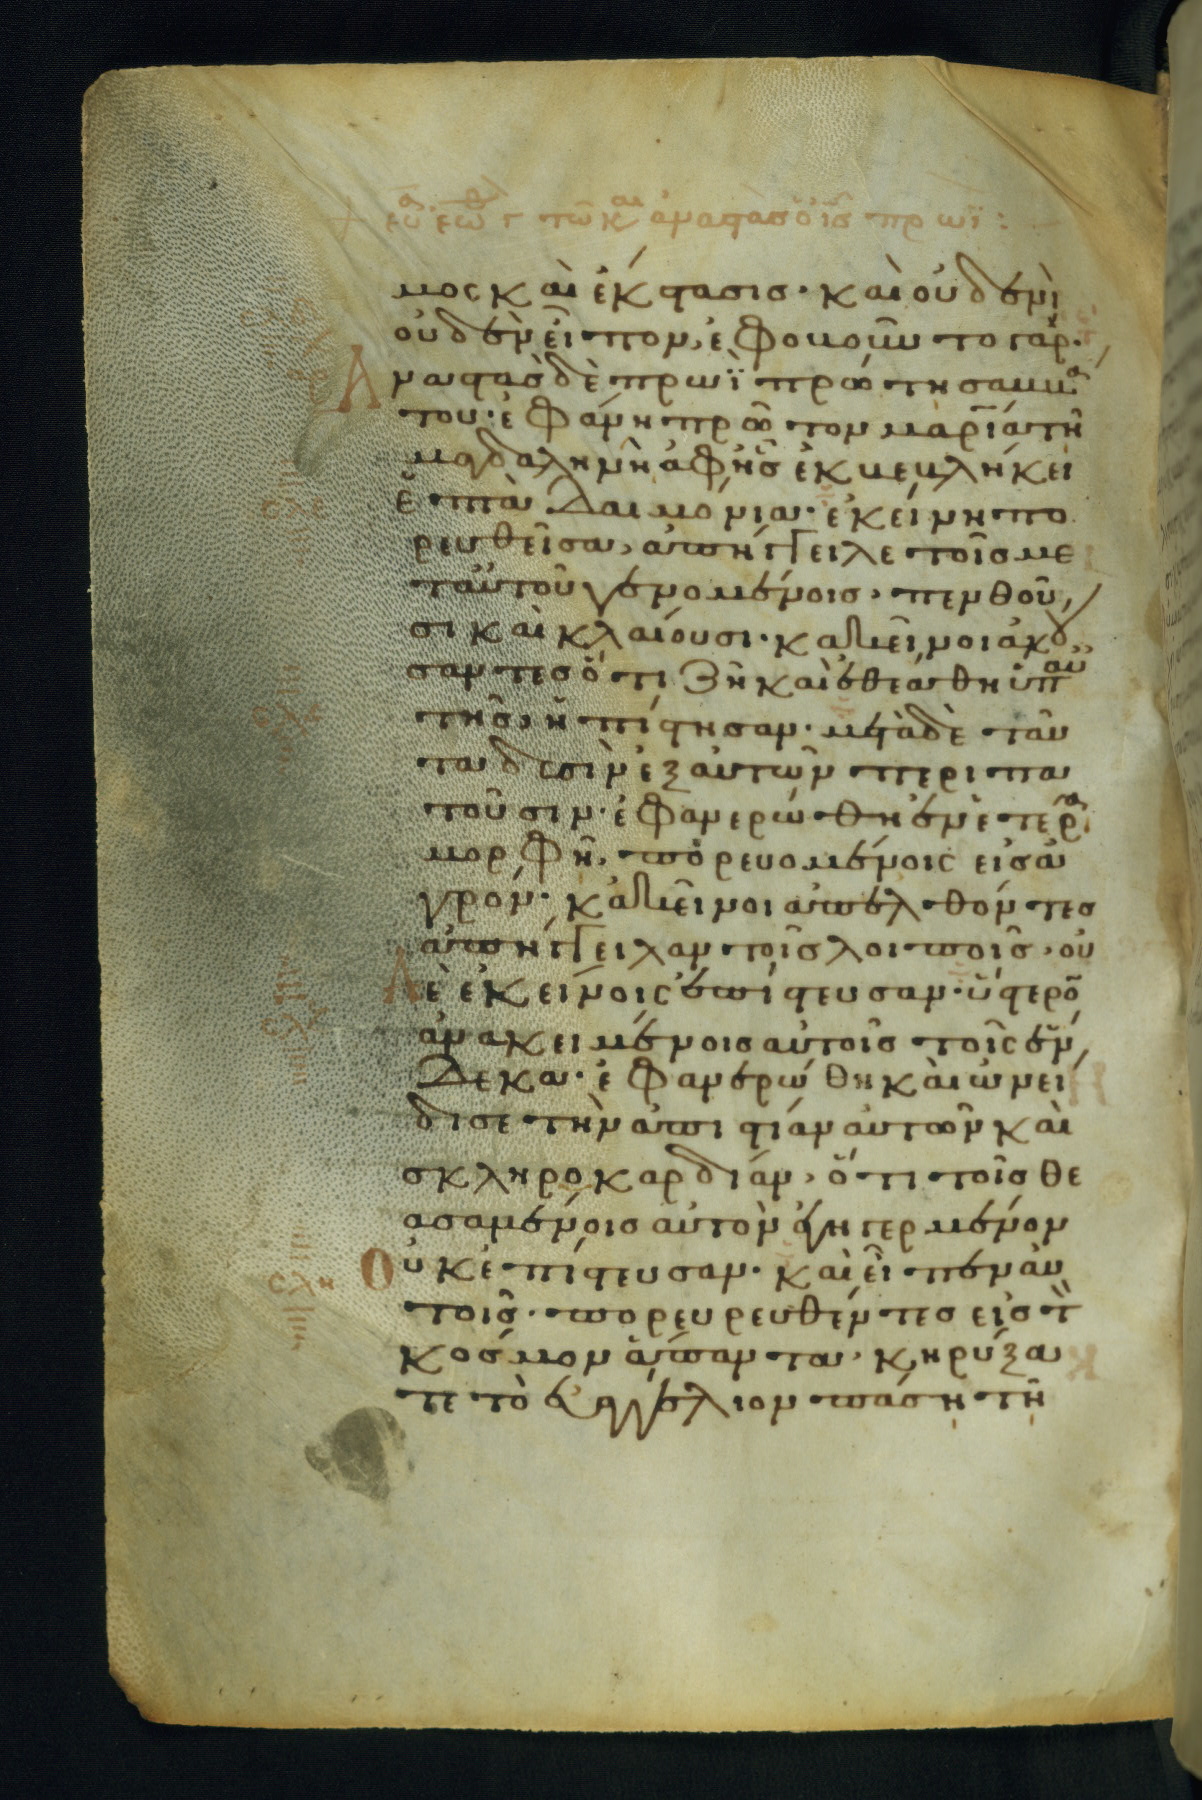 εὐ ἑωθ Γ τῶ και ἀναστὰς ὁ ισ πρωΐ:
μος καὶ ἔκστασις· καὶ οὐδενὶ
οὐδὲν εἶπον, ἐφοβοῦντο γάρ·
Ἀναστὰσ δὲ πρωῒ πρώτη σαββα
του· ἐφάνη πρῶτον μαρία τῆ
μαγδαληνῆ ἀφ' ἧσ ἐκβεβλήκει
ἑπτὰ δαιμόνια· ἐκείνη πο
ρευθεῖσα, ἀπήγγειλε τοῖσ με
τ' αὐτοῦ γενομένοισ, πενθοῦ
σι καὶ κλαίουσι· κἀκεῖνοι ἀκού
σαντεσ ὅτι ζῆ καὶ ἐθεάθη ὑπ' αυ
τῆσ, ἠπίστησαν· μετὰ δὲ ταῦ
τα δυσὶν ἐξ αὐτῶν περιπα
τοῦσιν· ἐφανερώθη ἐν ἑτέρα
μορφῆ, πορευομένοις εἰσ ἀ
γρόν· κἀκεῖνοι ἀπελθόντεσ
ἀπήγγειλαν τοῖσ λοιποῖσ, οὐ
δὲ ἐκείνοις ἐπίστευσαν· ὕστερον
ἀνακειμένοισ αὐτοῖσ τοῖς ἕν
δεκα· ἐφανερώθη καὶ ὠνεί
δισε τὴν ἀπιστίαν αὐτῶν καὶ
σκληροκαρδίαν, ὅτι τοῖσ θε
ασαμένοισ αὐτὸν ἐγηγερμένον
Οὐκ ἐπίστευσαν· καὶ εἶπεν αὐ
τοῖσ· πορευρευθέντεσ εἰσ τὸν
κόσμον ἅπαντα, κηρύξα
τε τὸ εὐαγγέλιον πάση τῆ